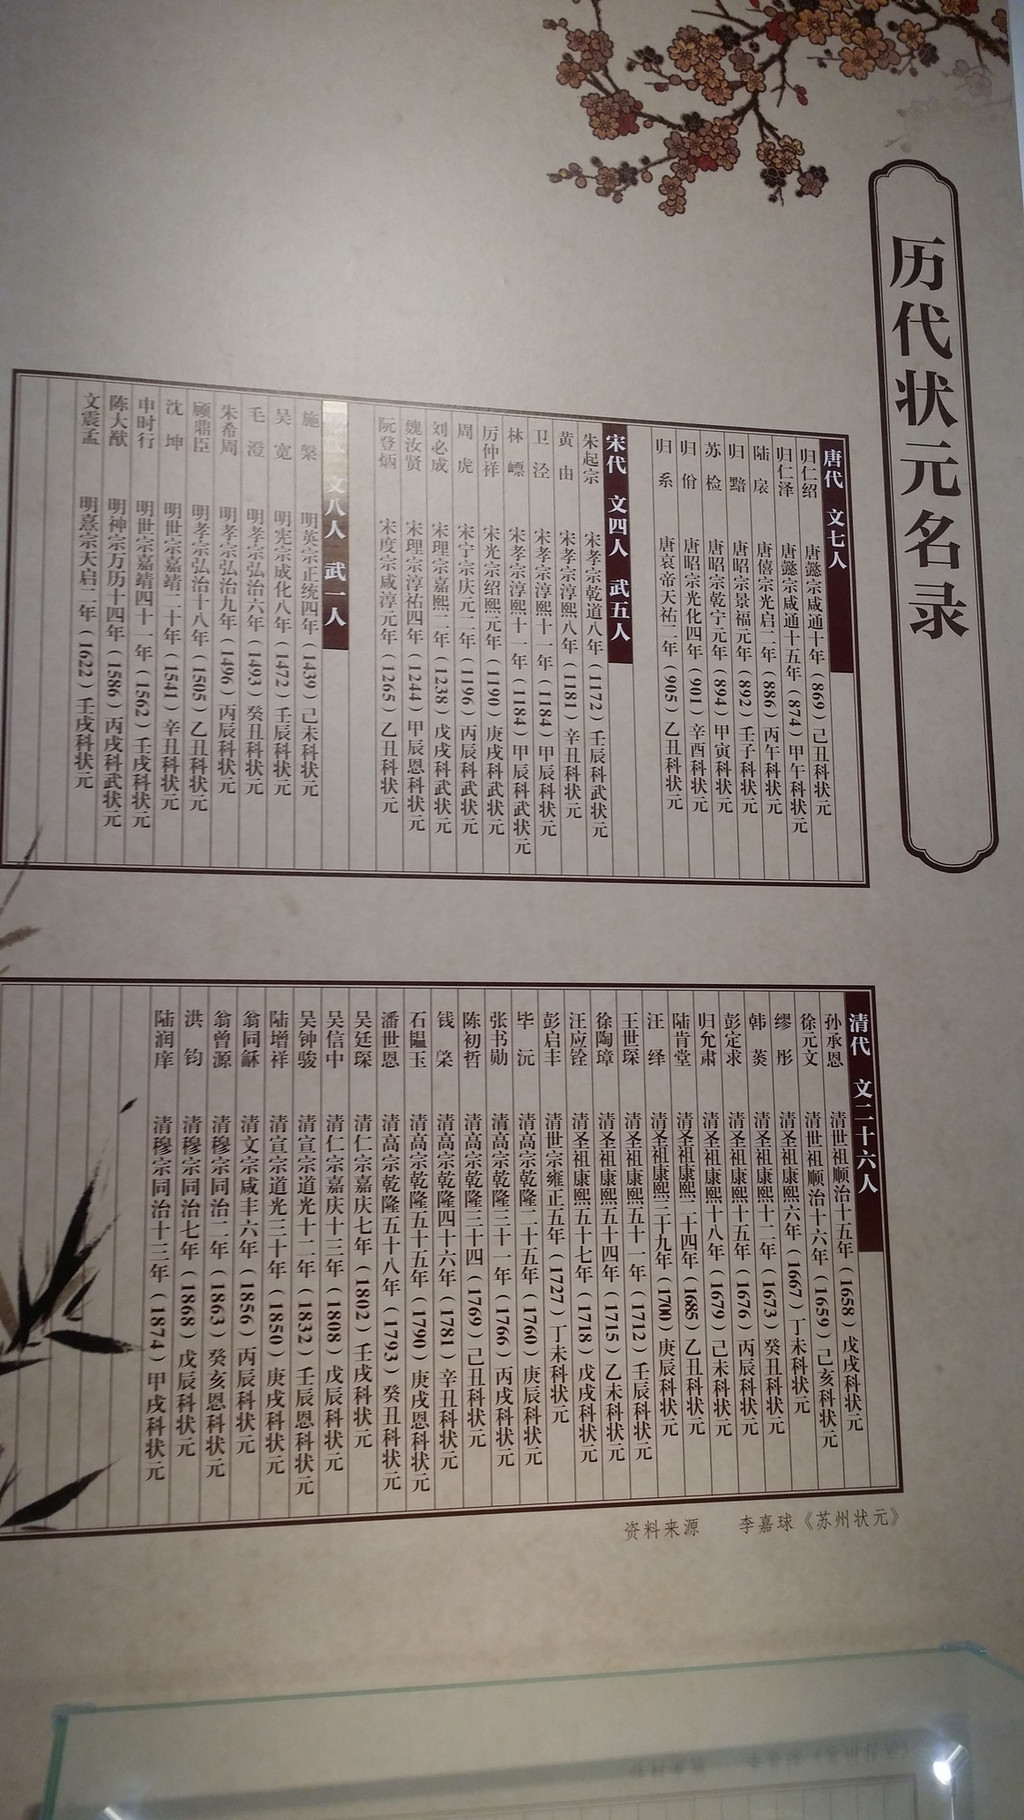 历代状元名录
唐代 文七人
归仁绍 唐懿宗咸通十年（869）己丑科状元
归仁泽 唐懿宗咸通十五年（874）甲午科状元
陆扆 唐僖宗光启二年（886）丙午科状元
归黯 唐昭宗景福元年（892）壬子科状元
苏检 唐昭宗乾宁元年（894）甲寅科状元
归佾 唐昭宗光化四年（901）辛酉科状元
归系 唐哀帝天祐二年（905）乙丑科状元
宋代 文四人 武五人
朱起宗 宋孝宗乾道八年（1172）壬辰科武状元
黄由 宋孝宗淳熙八年（1181）辛丑科状元
卫泾 宋孝宗淳熙十一年（1184）甲辰科状元
林嶂 宋孝宗淳熙十一年（1184）甲辰科武状元
厉仲祥 宋光宗绍熙元年（1190）庚戌科武状元
周虎 宋宁宗庆元二年（1196）丙辰科武状元
刘必成 宋理宗嘉熙二年（1238）戊戌科武状元
魏汝贤 宋理宗淳祐四年（1244）甲辰恩科状元
阮登炳 宋度宗咸淳元年（1265）乙丑科状元
文八人 武一人
施槃 明英宗正统四年（1439）己未科状元
吴宽 明宪宗成化八年（1472）壬辰科状元
毛澄 明孝宗弘治六年（1493）癸丑科状元
朱希周 明孝宗弘治九年（1496）丙辰科状元
顾鼎臣 明孝宗弘治十八年（1505）乙丑科状元
沈坤 明世宗嘉靖二十年（1541）辛丑科状元
申时行 明世宗嘉靖四十一年（1562）壬戌科状元
陈大猷 明神宗万历十四年（1586）丙戌科武状元
文震孟 明熹宗天启二年（1622）壬戌科状元
清代 文二十六人
孙承恩 清世祖顺治十五年（1658）戊戌科状元
徐元文 清世祖顺治十六年（1659）己亥科状元
缪彤 清圣祖康熙六年（1667）丁未科状元
韩菼 清圣祖康熙十二年（1673）癸丑科状元
彭定求 清圣祖康熙十五年（1676）丙辰科状元
归允肃 清圣祖康熙十八年（1679）己未科状元
陆肯堂 清圣祖康熙二十四年（1685）乙丑科状元
汪绎 清圣祖康熙三十九年（1700）庚辰科状元
王世琛 清圣祖康熙五十一年（1712）壬辰科状元
徐陶璋 清圣祖康熙五十四年（1715）乙未科状元
汪应铨 清圣祖康熙五十七年（1718）戊戌科状元
彭启丰 清世宗雍正五年（1727）丁未科状元
毕沅 清高宗乾隆二十五年（1760）庚辰科状元
张书勋 清高宗乾隆三十一年（1766）丙戌科状元
陈初哲 清高宗乾隆三十四（1769）己丑科状元
钱棨 清高宗乾隆四十六年（1781）辛丑科状元
石韫玉 清高宗乾隆五十五年（1790）庚戌恩科状元
潘世恩 清高宗乾隆五十八年（1793）癸丑科状元
吴廷琛 清仁宗嘉庆七年（1802）壬戌科状元
吴信中 清仁宗嘉庆十三年（1808）戊辰科状元
吴钟骏 清宣宗道光十二年（1832）壬辰恩科状元
陆增祥 清宣宗道光三十年（1850）庚戌科状元
翁同龢 清文宗咸丰六年（1856）丙辰科状元
翁曾源 清穆宗同治二年（1863）癸亥恩科状元
洪钧 清穆宗同治七年（1868）戊辰科状元
陆润庠 清穆宗同治十三年（1874）甲戌科状元
资料来源 李嘉球《苏州状元》